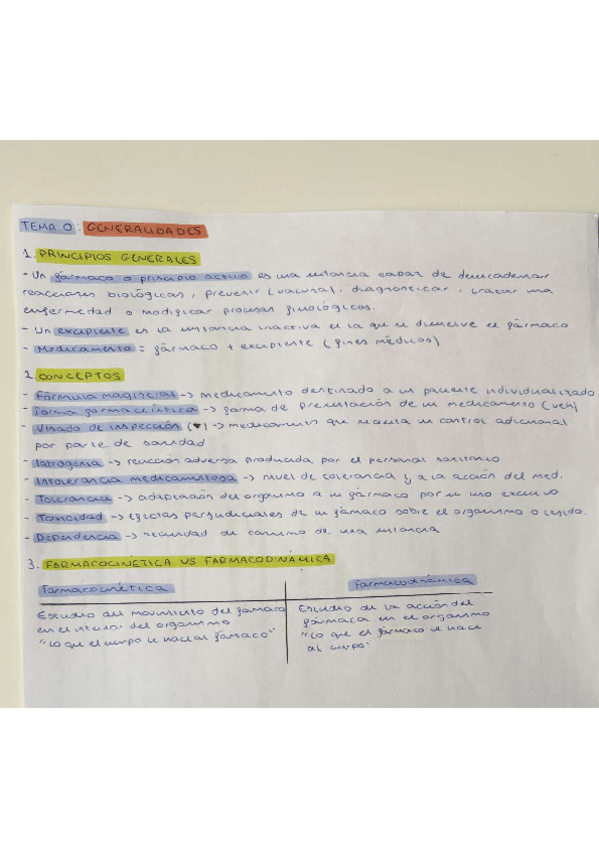 TEMA 0: GENERALIDADES
1. PRINCIPIOS GENERALES
- Un fármaco o principio activo es una sustancia capaz de desencadenar
reacciones biológicas, prevenir (vacuna), diagnosticar, tratar una
enfermedad o modificar procesos fisiológicos.
- Un excipiente es la sustancia inactiva el la que se disuelve el fármaco
- Medicamento = fármaco + excipiente (fines médicos)
2. CONCEPTOS
- Fórmula magistral -> medicamento destinado a un paciente individualizado
- Forma farmaceútica -> forma de presentación de un medicamento (ver)
- Visado de inspección (♥) -> medicamentos que necesita un control adicional
por parte de sanidad
- Iatrogenia -> reacción adversa producida por el personal sanitario
- Intolerancia medicamentosa -> nivel de tolerancia y a la acción del med.
- Tolerancia -> adaptación del organismo a un fármaco por su uso excesivo
- Toxicidad -> efectos perjudiciales de un fármaco sobre el organismo o tejido.
- Dependencia -> necesidad de consumo de una sustancia
3. FARMACOCINÉTICA VS FARMACODINÁMICA
Farmacocinética
Estudio del movimiento del fármaco
en el interior del organismo
"lo que el cuerpo le hace al fármaco"
Farmacodinámica
Estudio de la acción del
fármaco en el organismo
"lo que el fármaco le hace
al cuerpo"